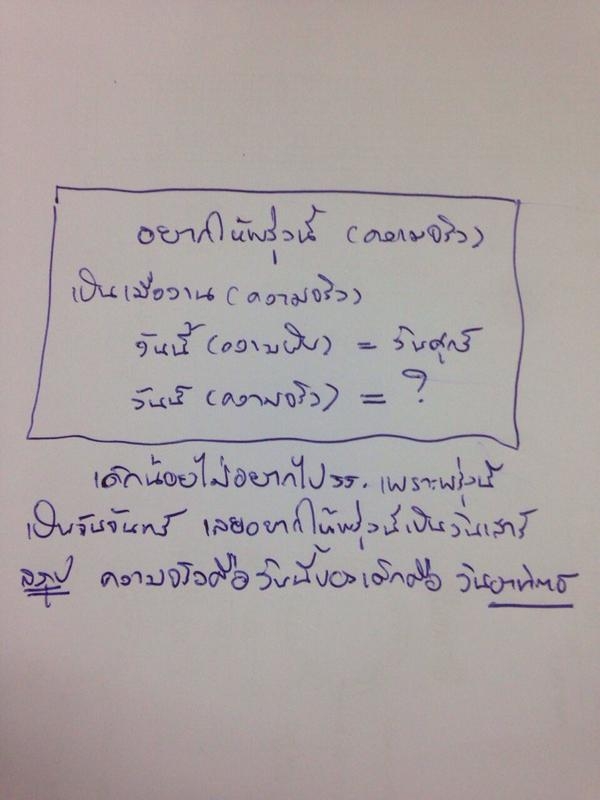 อยากให้พรุ่งนี้ (ความจริง)
เป็นเมื่อวาน (ความจริง)
วันนี้ (ความฝัน) = วันศุกร์
วันนี้ (ความจริง) = ?
เด็กน้อยไม่อยากไป รร. เพราะพรุ่งนี้
เป็นวันจันทร์ เลยอยากให้พรุ่งนี้เป็นวันเสาร์
สรุป ความจริงคือวันนี้ของเด็กคือ วันอาทิตย์